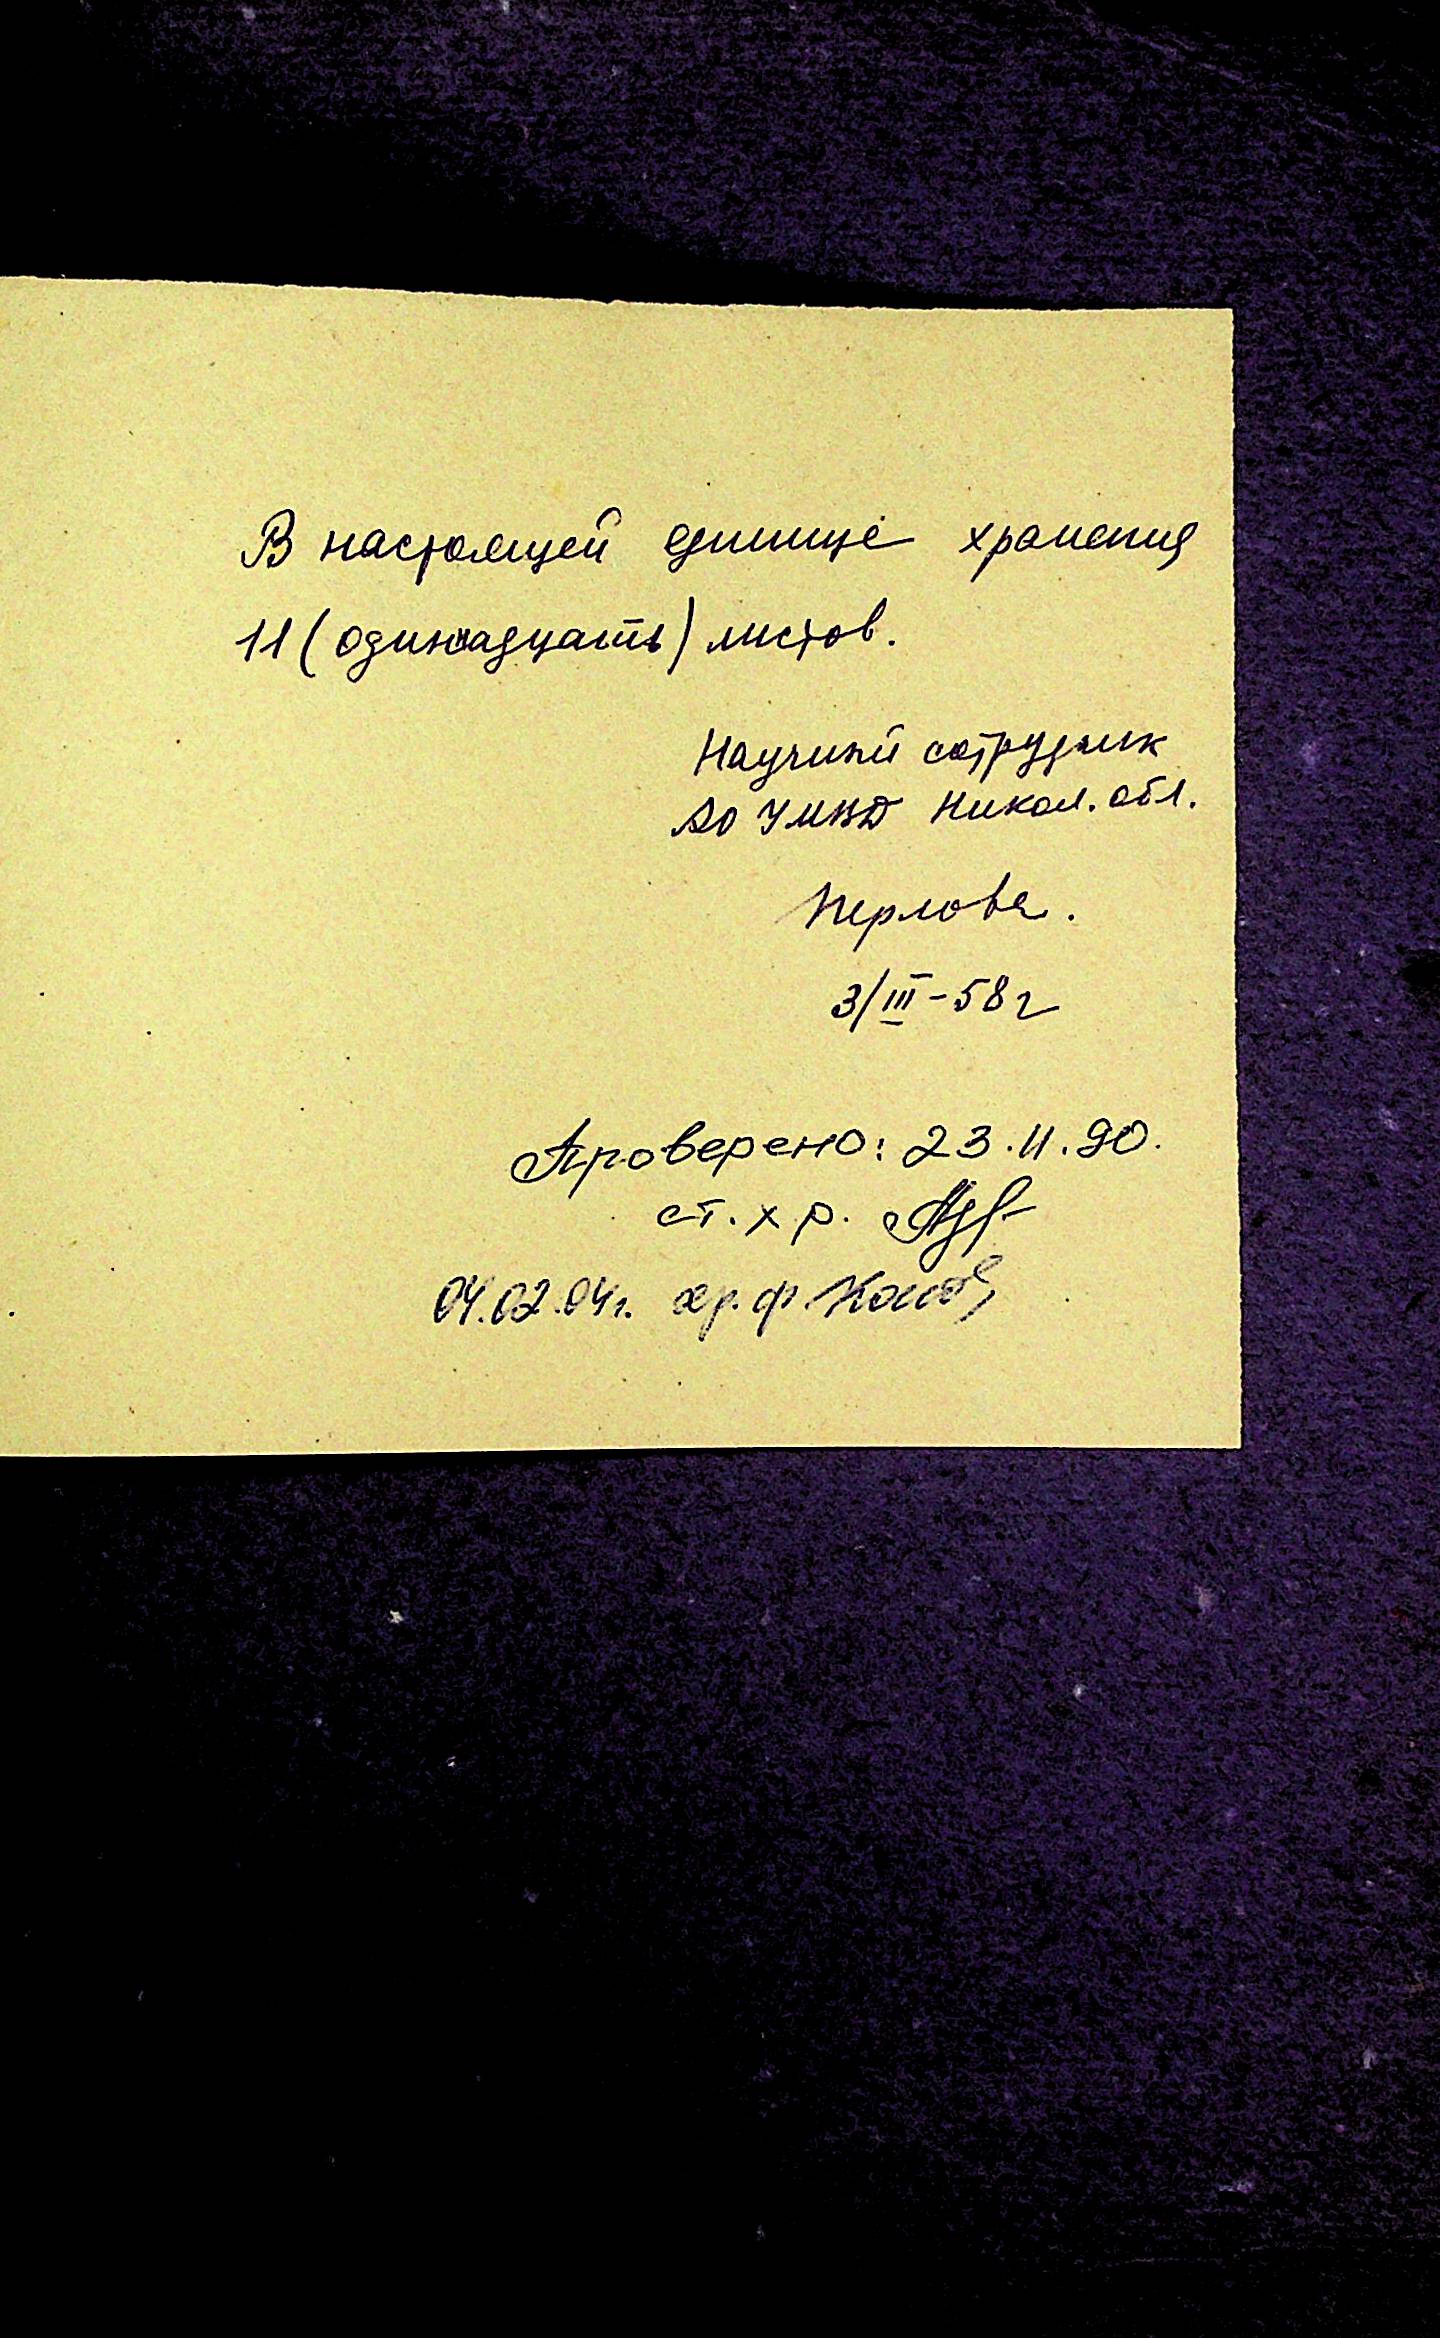 В настоящей единице хранения
11 (одинадцать) листов.
Научный сотрудник
АО УМВД Никол. обл.
Перлова.
3/III-58г
Проверено: 23.11.90.
ст. хр.
04.02.04г. хр. ф